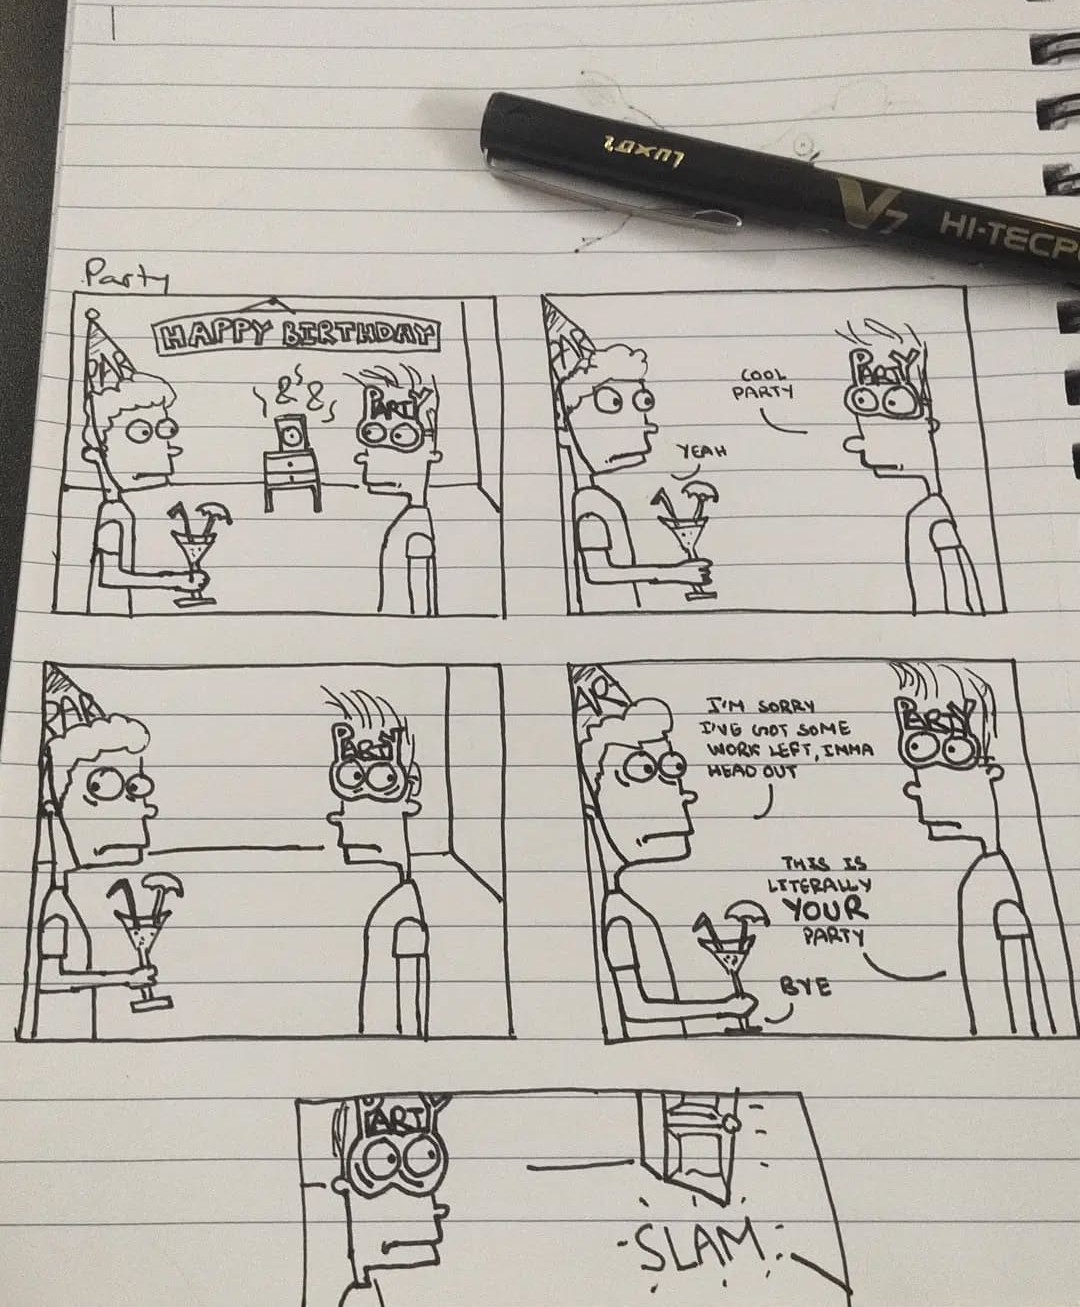 LUXOR
V7 HI-TECP
Party
HAPPY BIRTHDAY
PAR
PARTY
PAR
COOL
PARTY
PARTY
YEAH
PAR
PARTY
AR
I'M SORRY
I'VE GOT SOME
WORK LEFT, IMMA
HEAD OUT
PARTY
THIS IS
LITERALLY
YOUR
PARTY
BYE
ART
SLAM